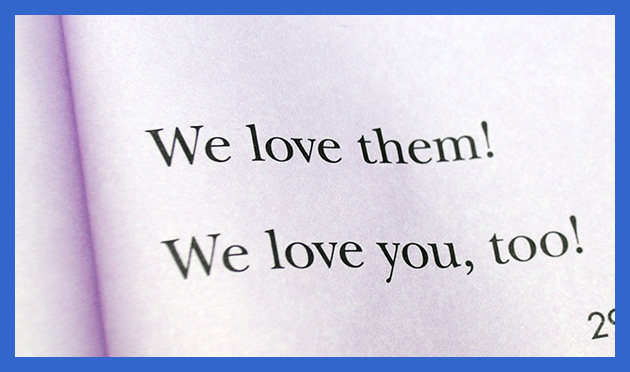 We love them!
We love you, too!